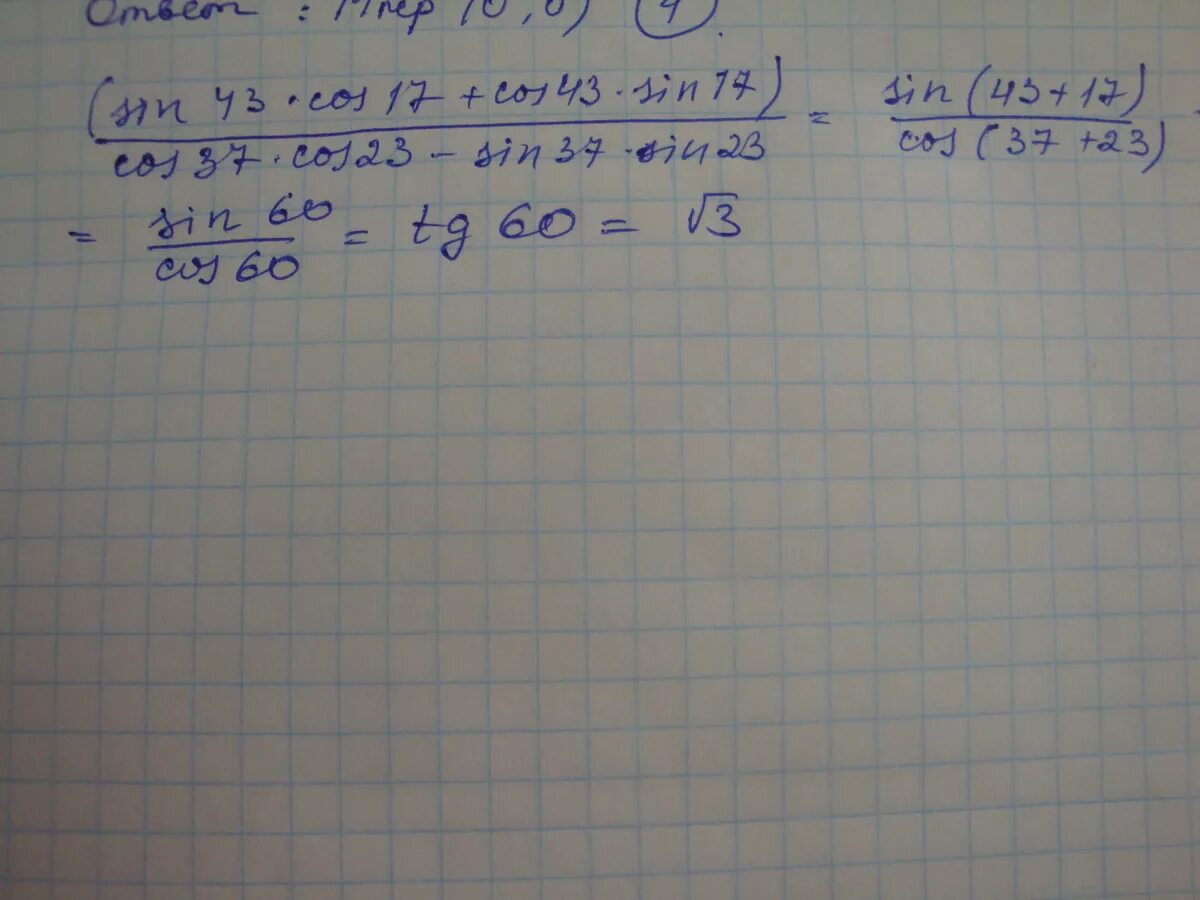 Ответ :
(sin 43 · cos 17 + cos 43 · sin 17) / cos 37 · cos 23 - sin 37 · sin 23 = sin (43 + 17) / cos (37 + 23)
= sin 60 / cos 60 = tg 60 = √3